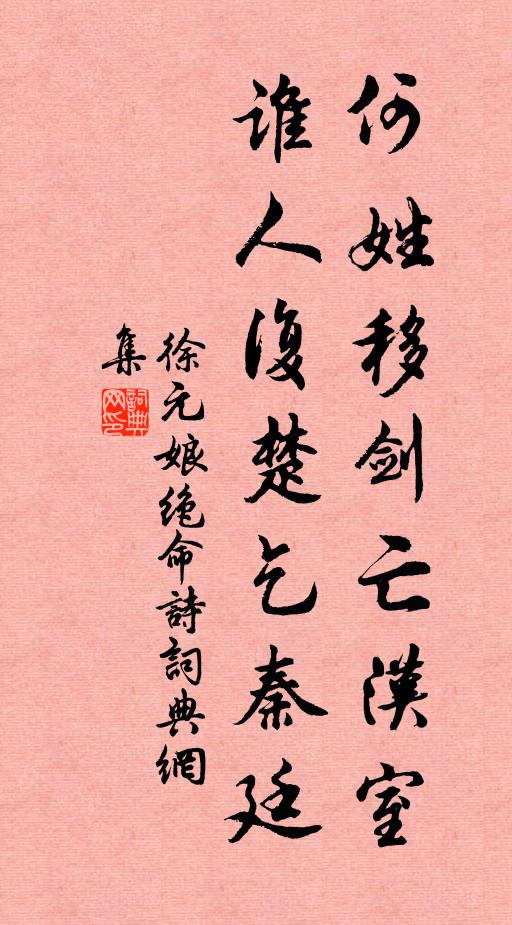 何姓移剑亡漢室
谁人復楚乞秦廷
徐元娘绝命詩詞典網
集
詞典
网印